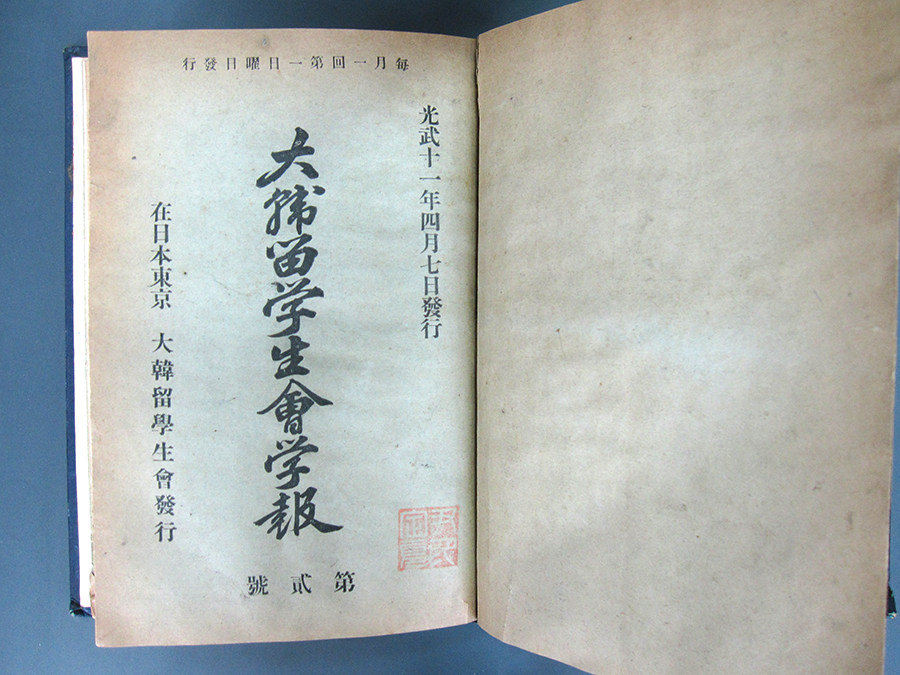 每月一回第一日曜日發行
光武十一年四月七日發行
大韓留学生會学報
第貳號
在日本東京 大韓留學生會發行